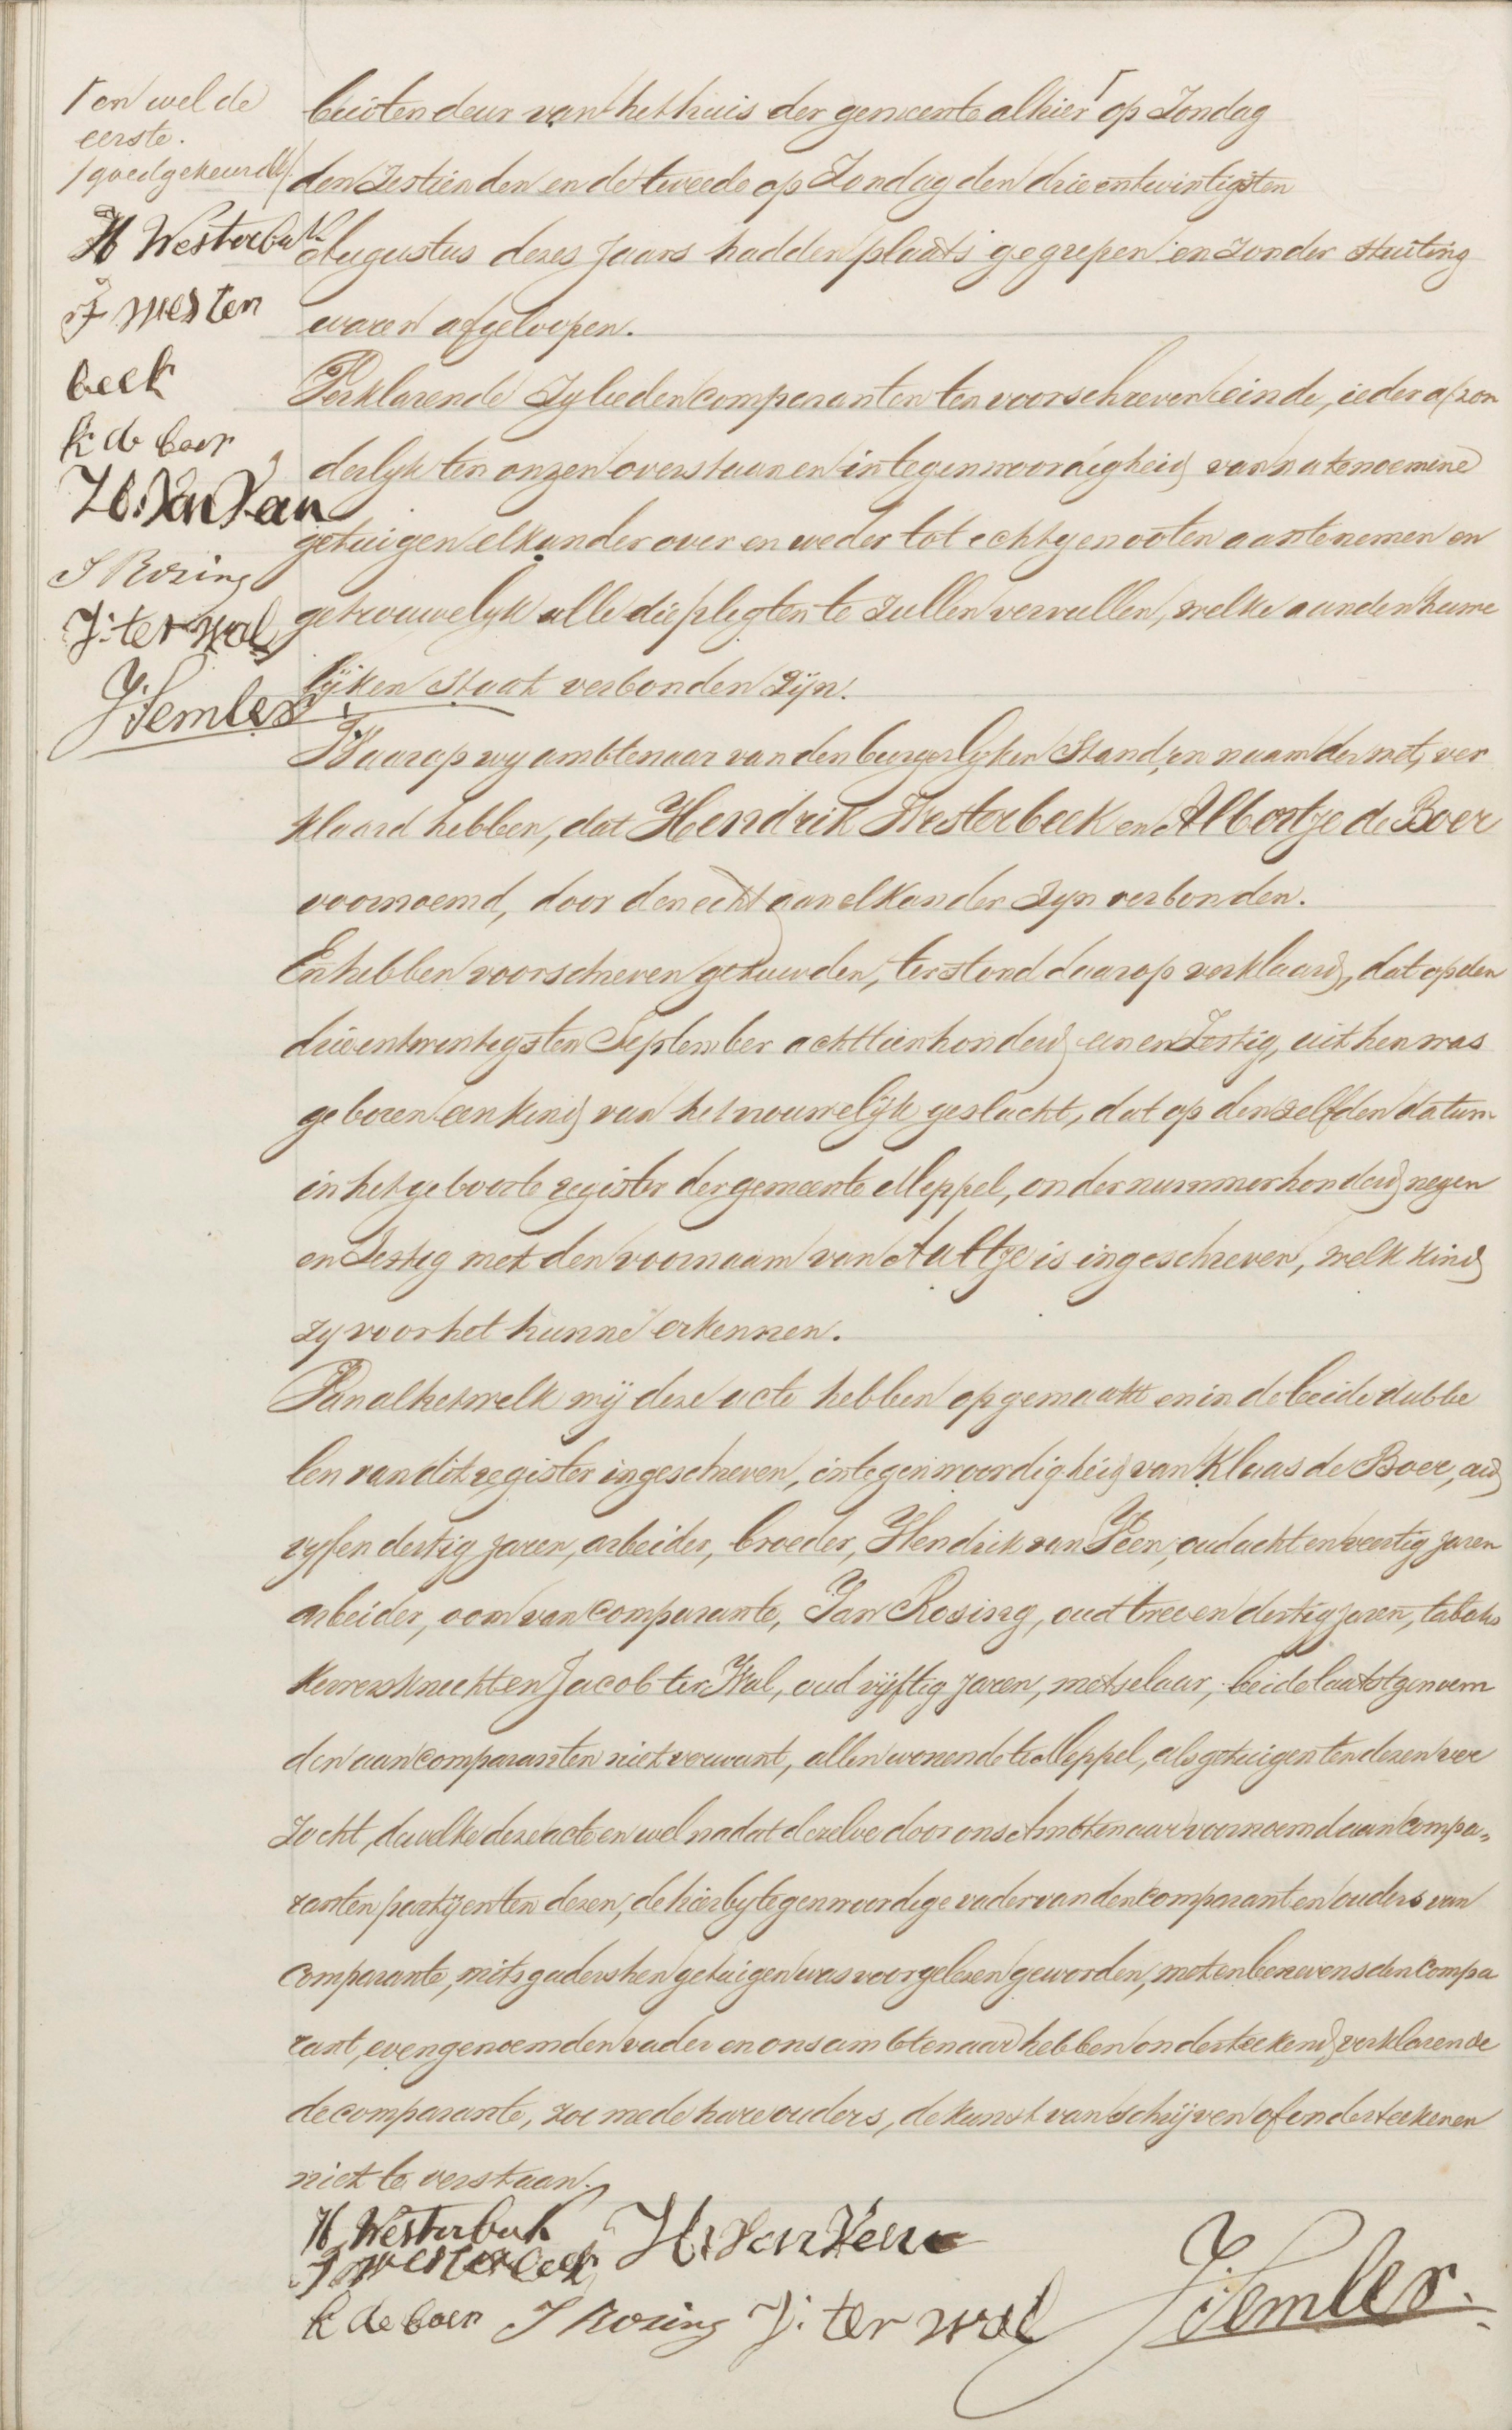 ⌈ en wel de
eerste.
/goedgekeurd/
H Westerbeek
J westen
beek
k de boer
H. van Veen
J Rosing
J: ter wal
J Semler
buitendeur van het huis der gemeente alhier ⌈ op Zondag
den Zestienden en de tweede op Zondag den drieentwintigsten
Augustus dezes Jaars hadden plaats gegrepen en zonder stuiting
waren afgeloopen.
Verklarende Zylieden comparanten ten voorschreven einde, ieder afzon
derlyk ten onzen overstaan en in tegenwoordigheid van natenoemene
getuigen elkander over en weder tot echtgenooten aantenemen en
getrouwelyk alle die plegten te zullen vervullen, welke aan den huwe
lijken staat verbonden zijn.
Waarop wy ambtenaar van den burgerlyken Stand, in naam der wet, ver
klaard hebben, dat Hendrik Westerbeek en Albertje de Boer
voornoemd, door den echt aan elkander zyn verbonden.
En hebben voorschreven gehuwden, terstond daarop verklaard, dat op den
drieentwintigsten September achttienhonderd een en Zestig, uit hen was
geboren een kind van het vrouwelijk geslacht, dat op denzelfden datum
in het geboorte register der gemeente Meppel, onder nummer honderd negen
en Zestig met den voornaam van Aaltje is ingeschreven, welk kind
zy voor het hunne erkennen.
Van al hetwelk wij deze acte hebben opgemaakt en in de beide dubbe
len van dit register ingeschreven, in tegenwoordigheid van Klaas de Boer, oud
vyf en dertig jaren, arbeider, broeder, Hendrik van Veen, oud acht en veertig jaren
arbeider, oom van comparante, Jan Rosing, oud twee en dertig jaren, tabaks
kervers knecht en Jacob ter Wal, oud vijftig jaren, metselaar, beide laatstgenoem
den aan comparanten niet verwant, allen wonende te Meppel, als getuigen ten dezen ver
zocht, dewelke deze acte en wel nadat dezelve door ons Ambtenaar voornoemd aan compa-
ranten partijen ten dezen, de hierby tegenwoordige vader van den comparant en ouders van
comparante, mitsgaders hen getuigen was voorgelezen geworden, met en benevens den compa
rant, evengenoemden vader en ons ambtenaar hebben onderteekend, verklarende
de comparante, zoo mede hare ouders, de kunst van schrijven of onderteekenen
niet te verstaan.
H Westerbeek
J westerbeek
H. van Veen
k de boer J Rosing J: ter wal
J Semler.